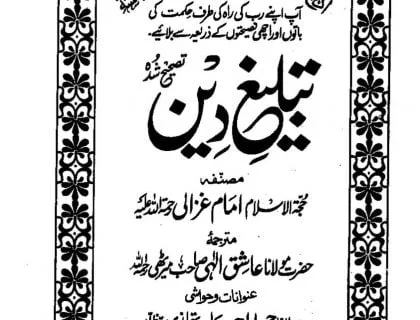 آپ اپنے رب کی راہ کی طرف حکمت کی
باتوں اور اچھی نصیحتوں کے ذریعہ سے بلائیے۔
تصحیح شدہ
تبلیغ دین
مصنفہ
حجۃ الاسلام امام غزالی رحمۃ اللہ علیہ
مترجمۂ
حضرت مولانا عاشق الٰہی صاحب میرٹھی رحمۃ اللہ
عنوانات و حواشی